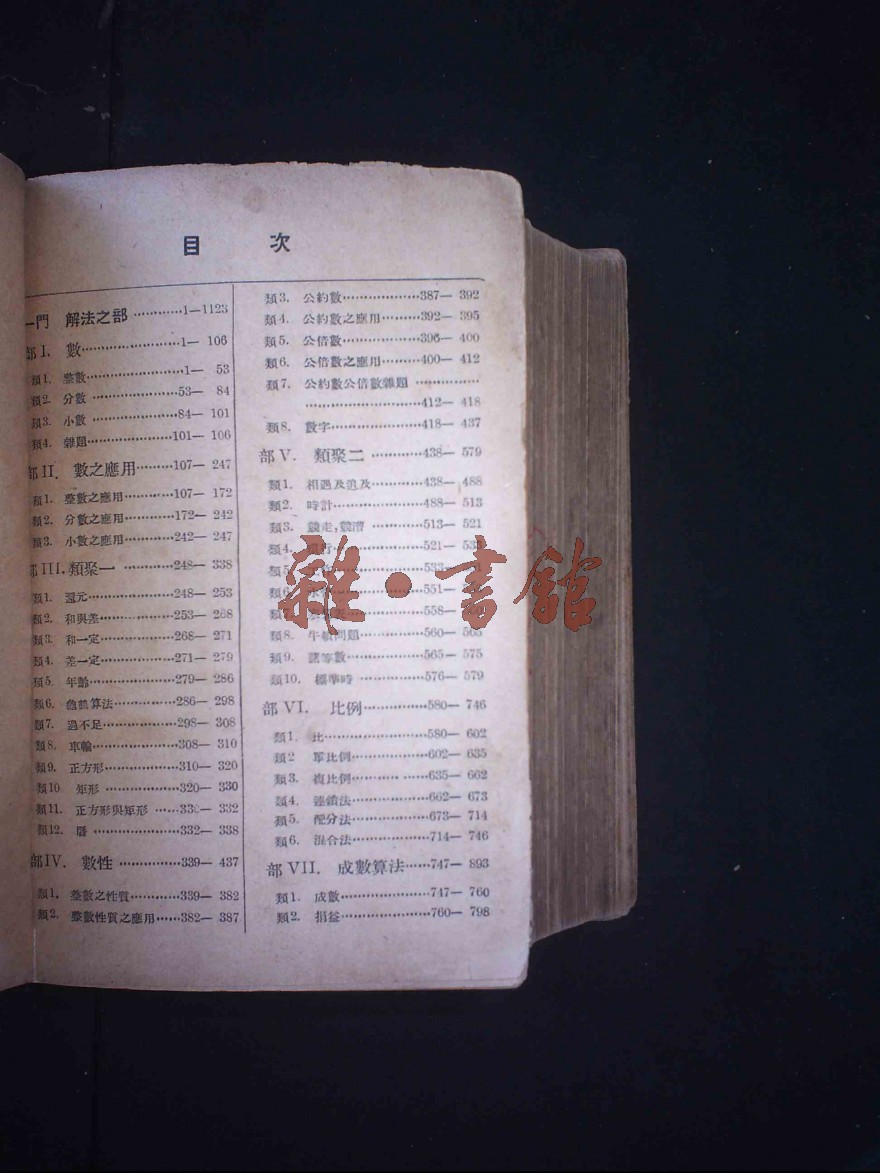 目 次
一門 解法之部…………1—1123
部 I. 數……………………1— 106
類1. 整數…………………1— 53
類2. 分數…………………53— 84
類3. 小數…………………84— 101
類4. 雜題…………………101— 106
部 II. 數之應用………107— 247
類1. 整數之應用…………107— 172
類2. 分數之應用…………172— 242
類3. 小數之應用…………242— 247
部 III. 類聚一…………248— 338
類1. 還元…………………248— 253
類2. 和與差………………253— 268
類3. 和一定………………268— 271
類4. 差一定………………271— 279
類5. 年齡…………………279— 286
類6. 龜鶴算法……………286— 298
類7. 過不足………………298— 308
類8. 車輪…………………308— 310
類9. 正方形………………310— 320
類10. 矩形………………320— 330
類11. 正方形與矩形……330— 332
類12. 曆…………………332— 338
部 IV. 數性……………339— 437
類1. 整數之性質…………339— 382
類2. 整數性質之應用……382— 387
類3. 公約數………………387— 392
類4. 公約數之應用………392— 395
類5. 公倍數………………396— 400
類6. 公倍數之應用………400— 412
類7. 公約數公倍數雜題……………
……………………412— 418
類8. 數字…………………418— 437
部 V. 類聚二…………438— 579
類1. 相遇及追及…………438— 488
類2. 時計…………………488— 513
類3. 競走,競漕…………513— 521
類4. 行…………………521—
類5. 533—
類6. 551—
類7. 558—
類8. 牛頓問題……………560— 565
類9. 諸等數………………565— 575
類10. 標準時……………576— 579
部 VI. 比例……………580— 746
類1. 比……………………580— 602
類2 單比例………………602— 635
類3. 複比例………………635— 662
類4. 連鎖法………………662— 673
類5. 配分法………………673— 714
類6. 混合法………………714— 746
部 VII. 成數算法……747— 893
類1. 成數…………………747— 760
類2. 損益…………………760— 798
雜·書館